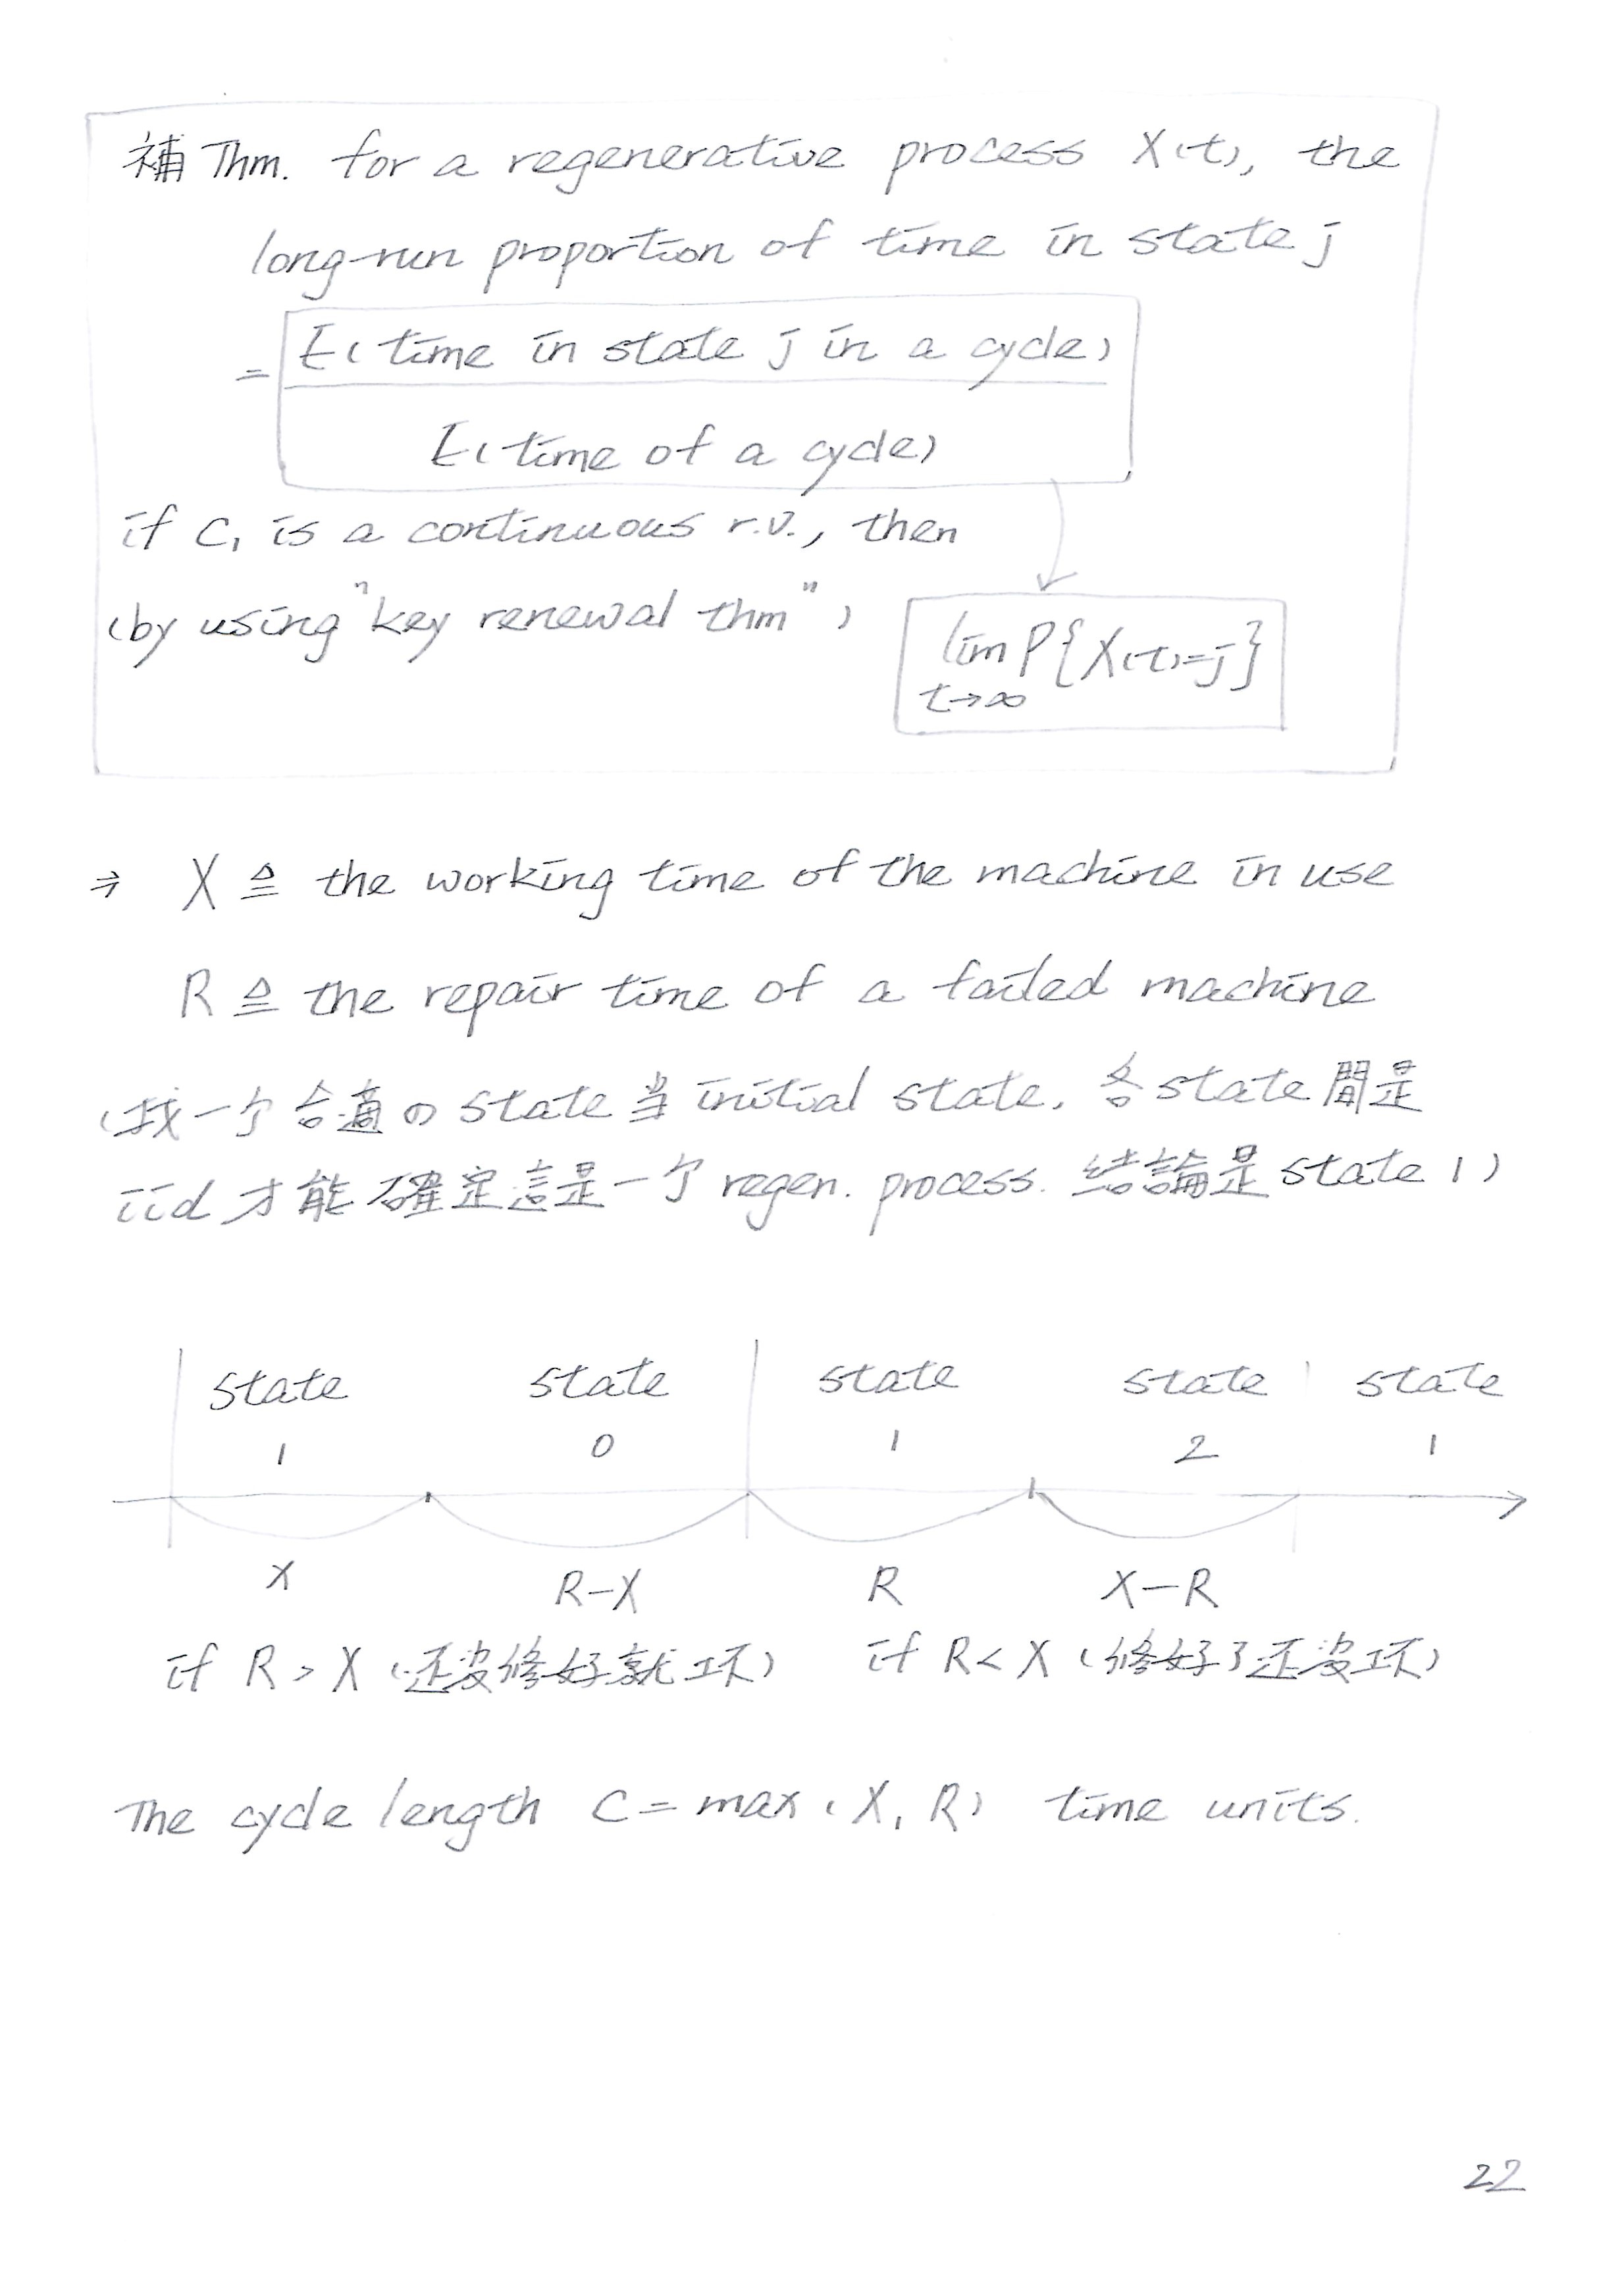 補 Thm. for a regenerative process X(t), the
long-run proportion of time in state j
= E(time in state j in a cycle)
E(time of a cycle)
if C₁ is a continuous r.v., then
(by using "key renewal thm")
lim P{X(t)=j}
t→∞
⇒ X ≜ the working time of the machine in use
R ≜ the repair time of a failed machine
(找一个合適の state 当 initial state, 各 state 間是
iid 才能確定這是一个 regen. process. 結論是 state 1)
state state state state state
1 0 1 2 1
X R-X R X-R
if R>X (还沒修好就坏) if R<X (修好了还沒坏)
The cycle length C = max(X, R) time units.
22